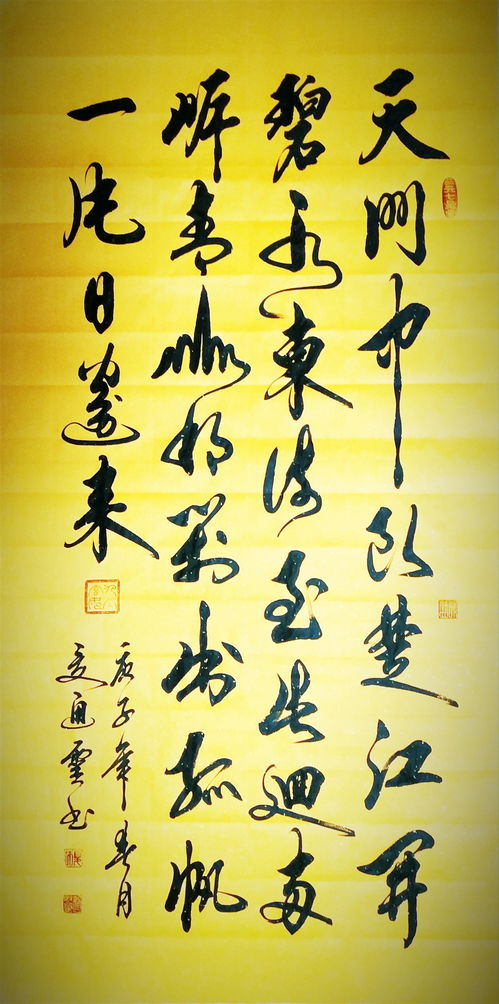 天門中断楚江開
碧水東流至此迴两
岸青山相對出孤帆
一片日邊来
庚子年春月
通雲书